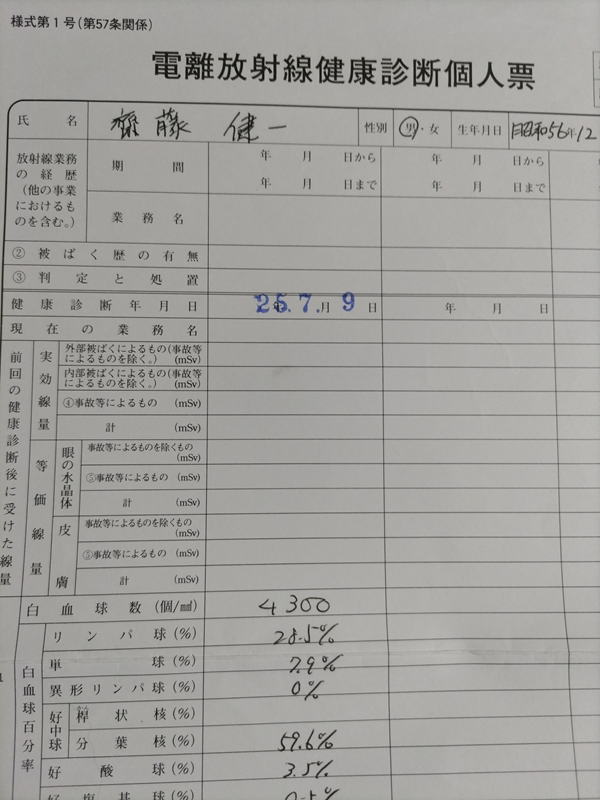 様式第1号(第57条関係)
電離放射線健康診断個人票
氏名 齋藤 健一 性別 男・女 生年月日 昭和56年12
放射線業務の経歴(他の事業におけるものを含む。)
期間 年 月 日から 年 月 日から
年 月 日まで 年 月 日まで
業務名
②被ばく歴の有無
③判定と処置
健康診断年月日 25.7.月9日 年 月 日
現在の業務名
前回の健康診断後に受けた線量
実効線量
外部被ばくによるもの(事故等によるものを除く。) (mSv)
内部被ばくによるもの(事故等によるものを除く。) (mSv)
④事故等によるもの (mSv)
計 (mSv)
等価線量
眼の水晶体
事故等によるものを除くもの (mSv)
⑤事故等によるもの (mSv)
計 (mSv)
皮膚
事故等によるものを除くもの (mSv)
⑤事故等によるもの (mSv)
計 (mSv)
白血球数(個/㎣) 4300
白血球百分率
リンパ球(%) 28.5%
単球(%) 7.9%
異形リンパ球(%) 0%
好中球
桿状核(%)
分葉核(%) 59.6%
好酸球(%) 3.5%
好塩基球(%) 0.5%